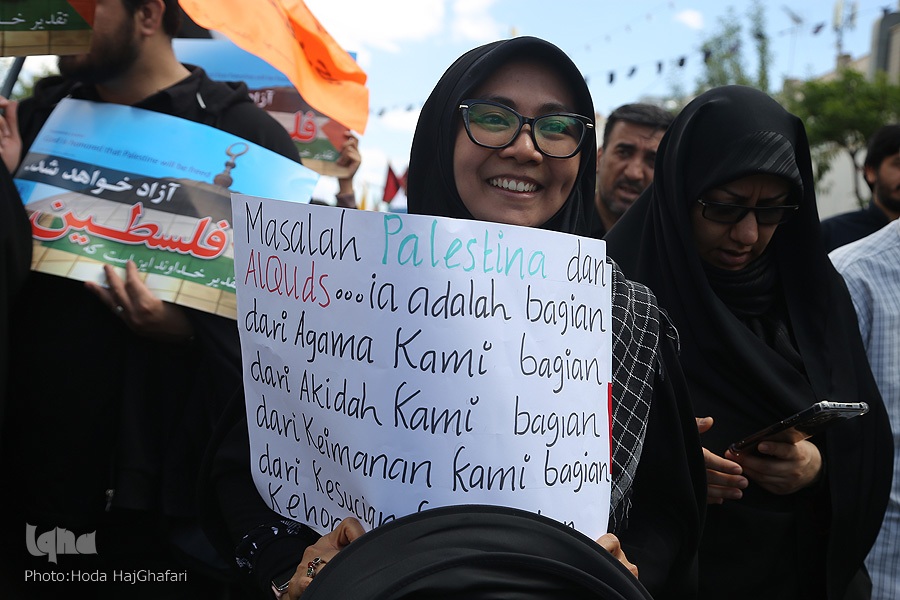 is honored that Palestine will be freed
آزاد خواهد شد..
فلسطین
تقدیر خداوند این است که
Masalah Palestina dan
AlQUds...ia adalah bagian
dari Agama Kami bagian
dari Akidah Kami bagian
dari Keimanan kami bagian
dari Kesucian
Kehor
iqna
Photo:Hoda HajGhafari